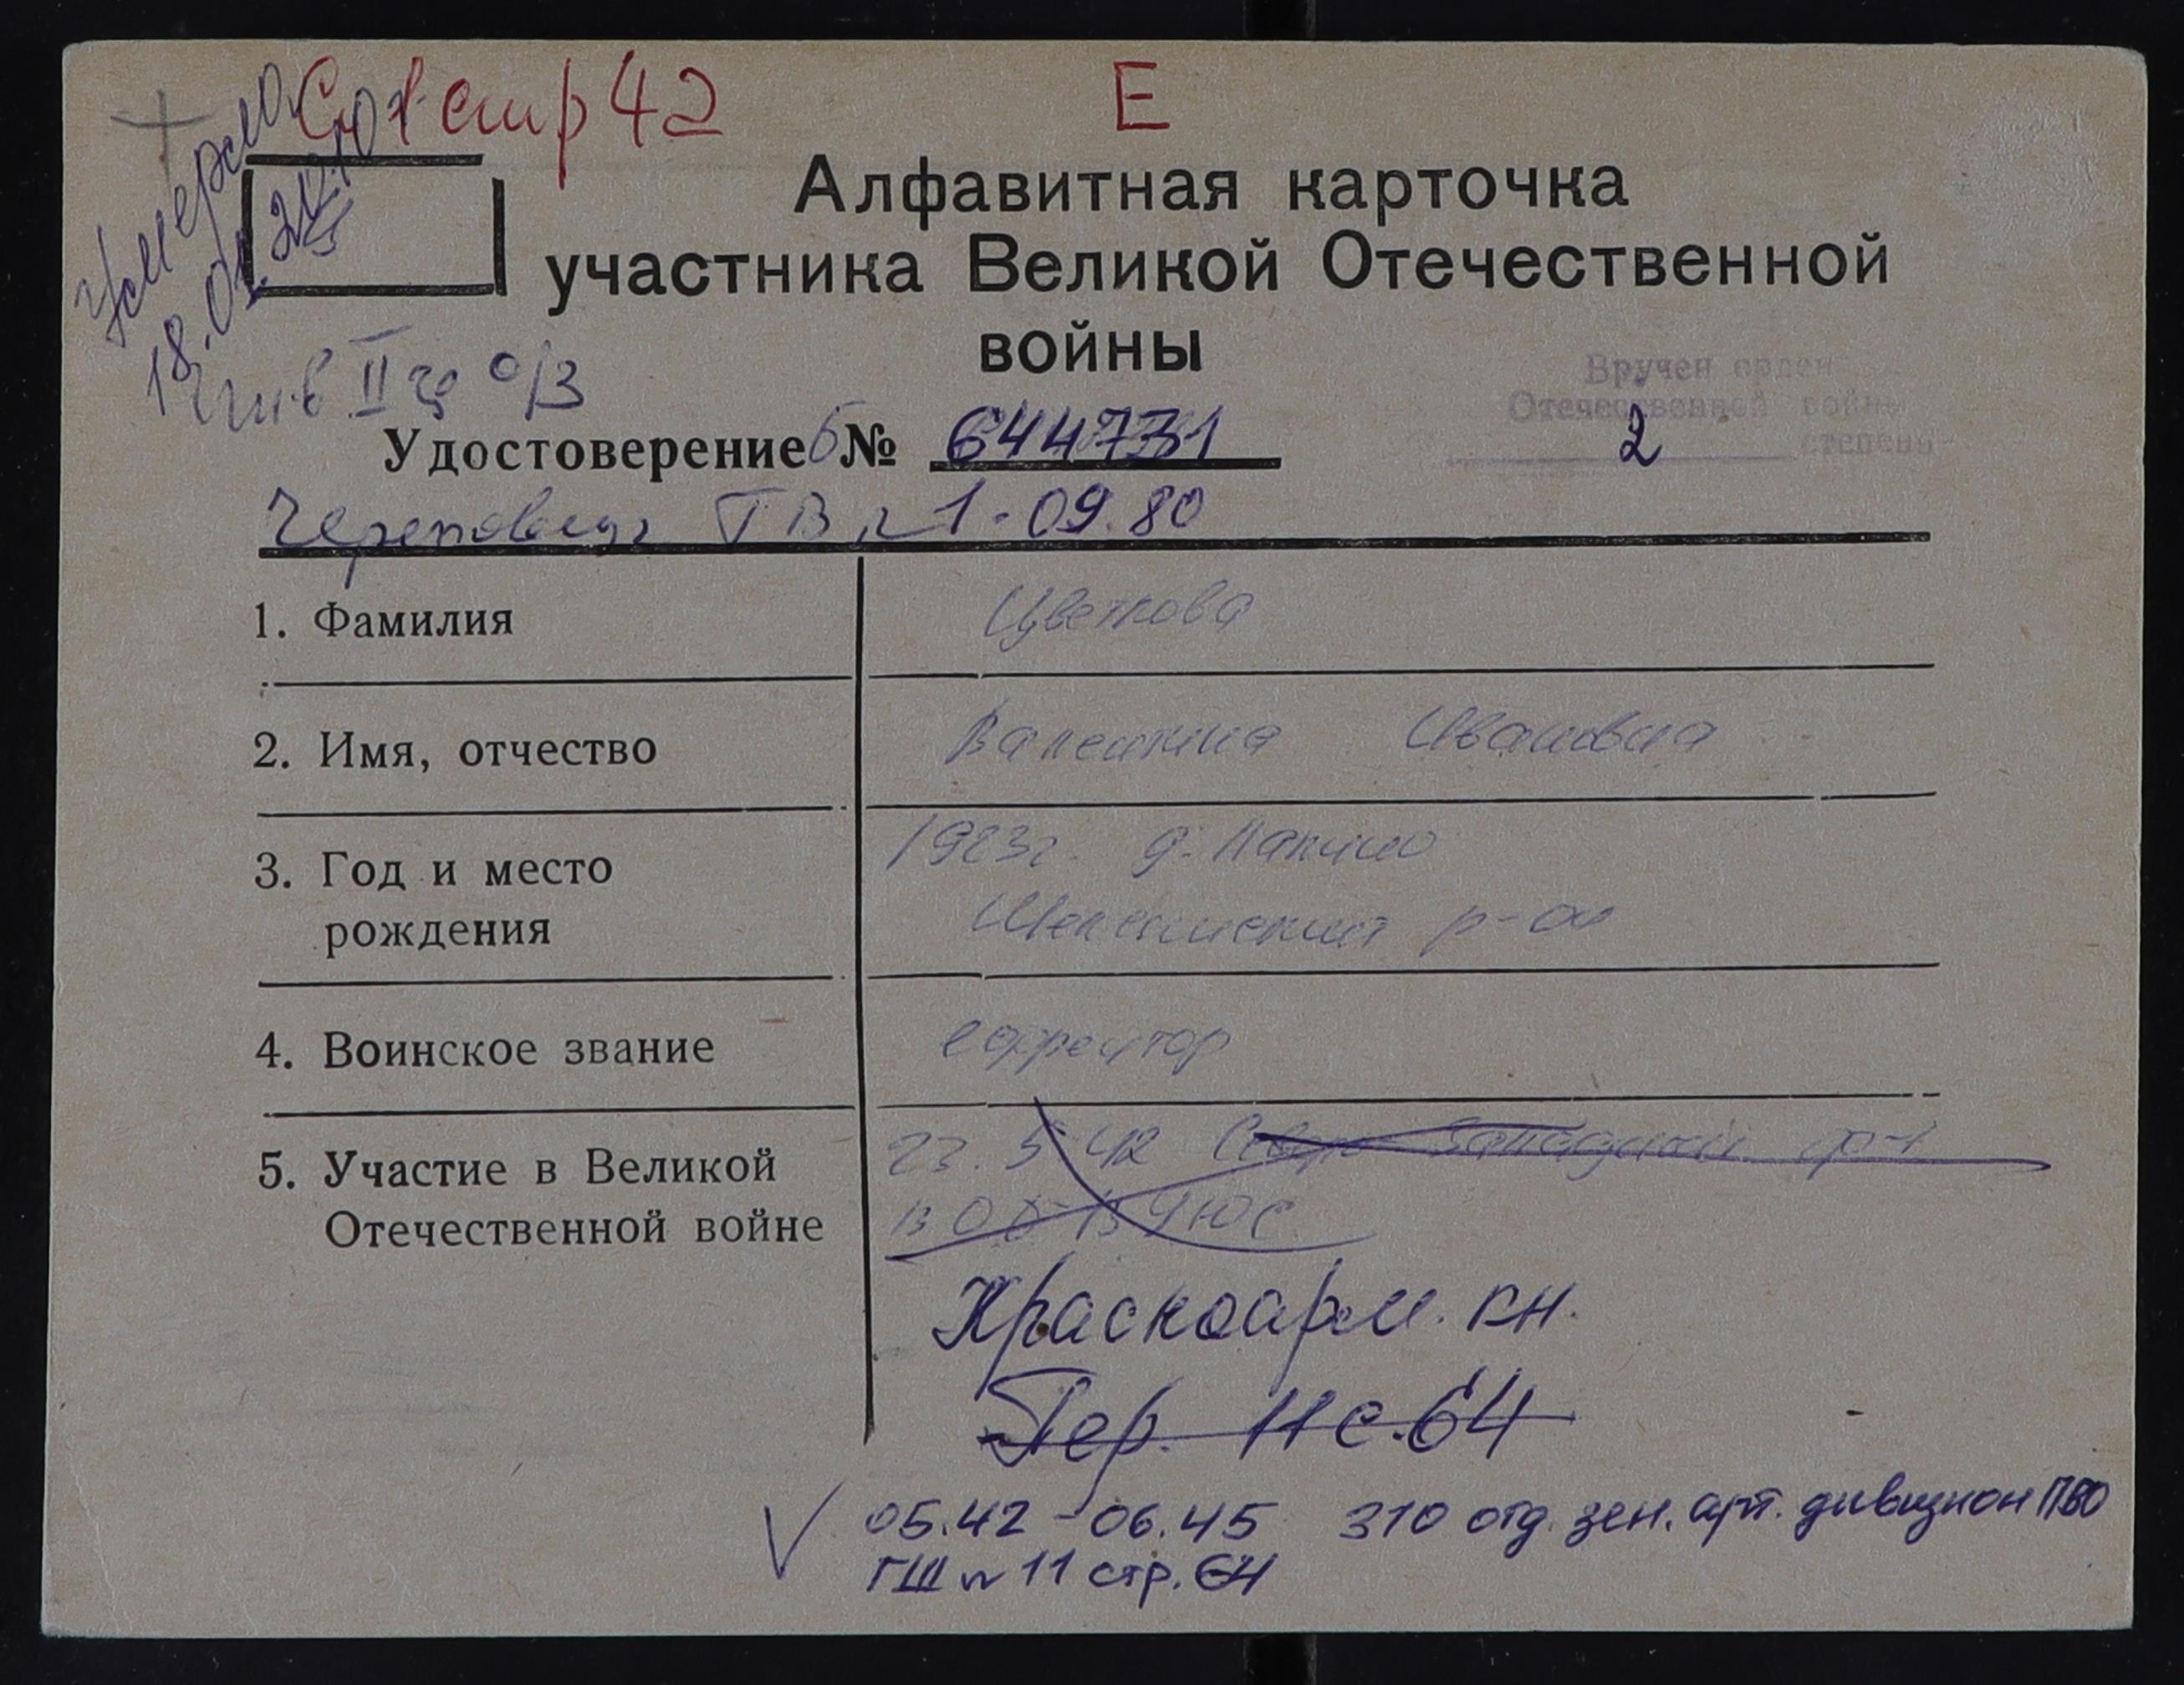 стр 42
Е
Умерла
Алфавитная карточка
участника Великой Отечественной
войны
инв II гр о/з
Вручен орден
Отечественной войны
2 степени
Удостоверение Б № 644731
Череповец ГВК 1-09.80
1. Фамилия Цветкова
2. Имя, отчество Валентина Ивановна
3. Год и место 1923г. д.
рождения Шекснинский р-он
4. Воинское звание ефрейтор
5. Участие в Великой 23.5.42 Северо Западный ф-т
Отечественной войне
Красноарм. кн.
Пер. 11 с. 64
05.42 - 06.45 310 отд. зен. арт. дивизион ПВО
ГШ № 11 стр. 64